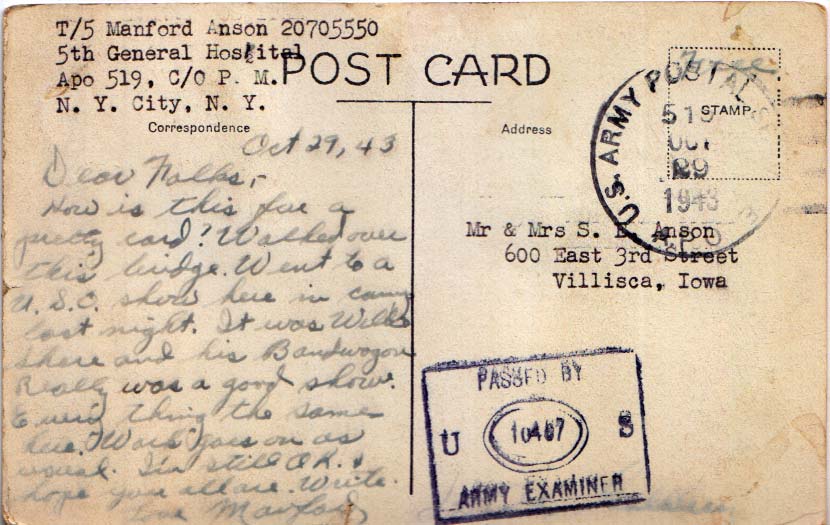 T/5 Manford Anson 20705550
5th General Hospital
Apo 519, C/O P. M.
N. Y. City, N. Y.
POST CARD
Correspondence
Address
Free
STAMP
U.S. ARMY POSTAL
519
OCT
29
1943
A P O
Oct 29, 43
Dear Folks,-
How is this for a
pretty card? Walked over
this bridge. Went to a
U.S.O. show here in camp
last night. It was Willie
Shore and his Bandwagon
Really was a good show.
Every thing the same
here. Work goes on as
usual. I'm still O.K. &
hope you all are. Write.
Love Manford
Mr & Mrs S. E. Anson
600 East 3rd Street
Villisca, Iowa
PASSED BY
U 10467 S
ARMY EXAMINER